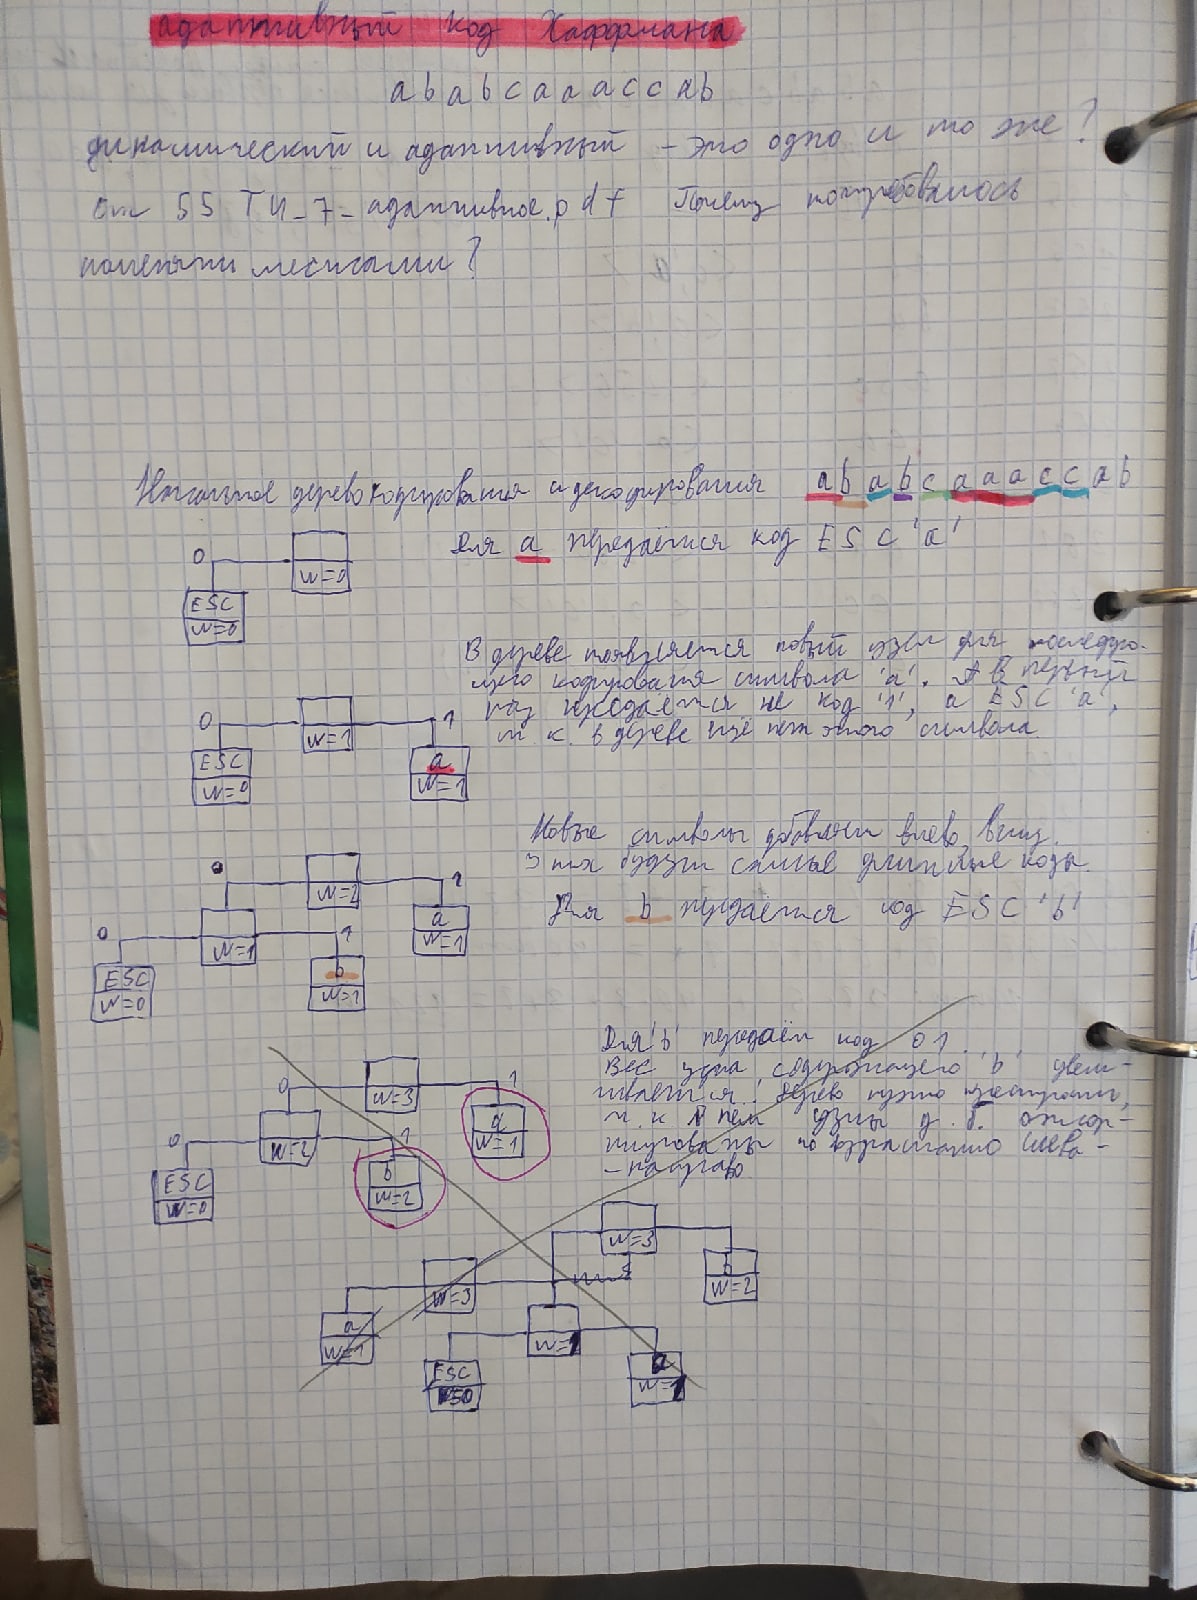 адаптивный код Хаффмана
a b a b c a a a c c a b
динамический и адаптивный - это одно и то же?
стр 55 ТИ_7_адаптивное.pdf Почему потребовалось
поменять местами?
Начальное дерево кодирования и декодирования a b a b c a a a c c a b
Для a передаётся код ESC 'a'
0
W=0
ESC
W=0
В дереве появляется новый узел для последую-
щего кодирования символа 'a'. А в первый
раз передаётся не код '1', а ESC 'a',
т.к. в дереве ещё нет этого символа
0
W=1
1
ESC
W=0
a
W=1
Новые символы добавляем влево, вниз.
Это будут самые длинные коды.
Для b передаётся код ESC 'b'
0
W=2
1
a
W=1
0
W=1
1
ESC
W=0
b
W=1
Для 'b' передаём код 01.
Вес узла содержащего 'b' увели-
чивается. Дерево нужно перестроить,
т.к. в нем узлы д.б. отсор-
тированы по возрастанию слева-
-направо
0
W=3
1
a
W=1
0
W=2
1
ESC
W=0
b
W=2
W=3
b
W=2
W=3
a
W=1
W=1
ESC
W=0
a
W=1